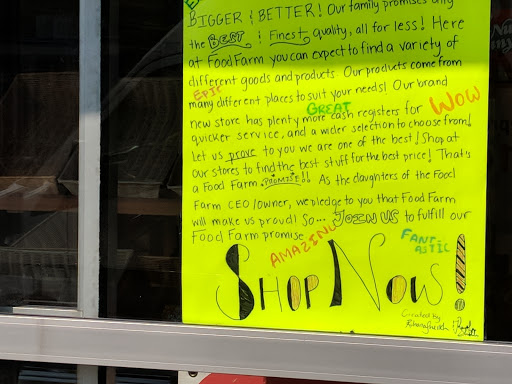 BIGGER & BETTER! Our family promises only
the BEST & Finest quality, all for less! Here
at Food Farm you can expect to find a variety of
different goods and products. Our products come from
EPIC
many different places to suit your needs! Our brand
GREAT
WOW
new store has plenty more cash registers for
quicker service, and a wider selection to choose from!
Let us prove to you we are one of the best! Shop at
our stores to find the best stuff for the best price! That's
a Food Farm PROMISE!! As the daughters of the Food
Farm CEO/owner, we pledge to you that Food Farm
will make us proud! So... JOIN US to fulfill our
Food Farm promise
AMAZING
FANTASTIC
SHOP NOW!
Created By